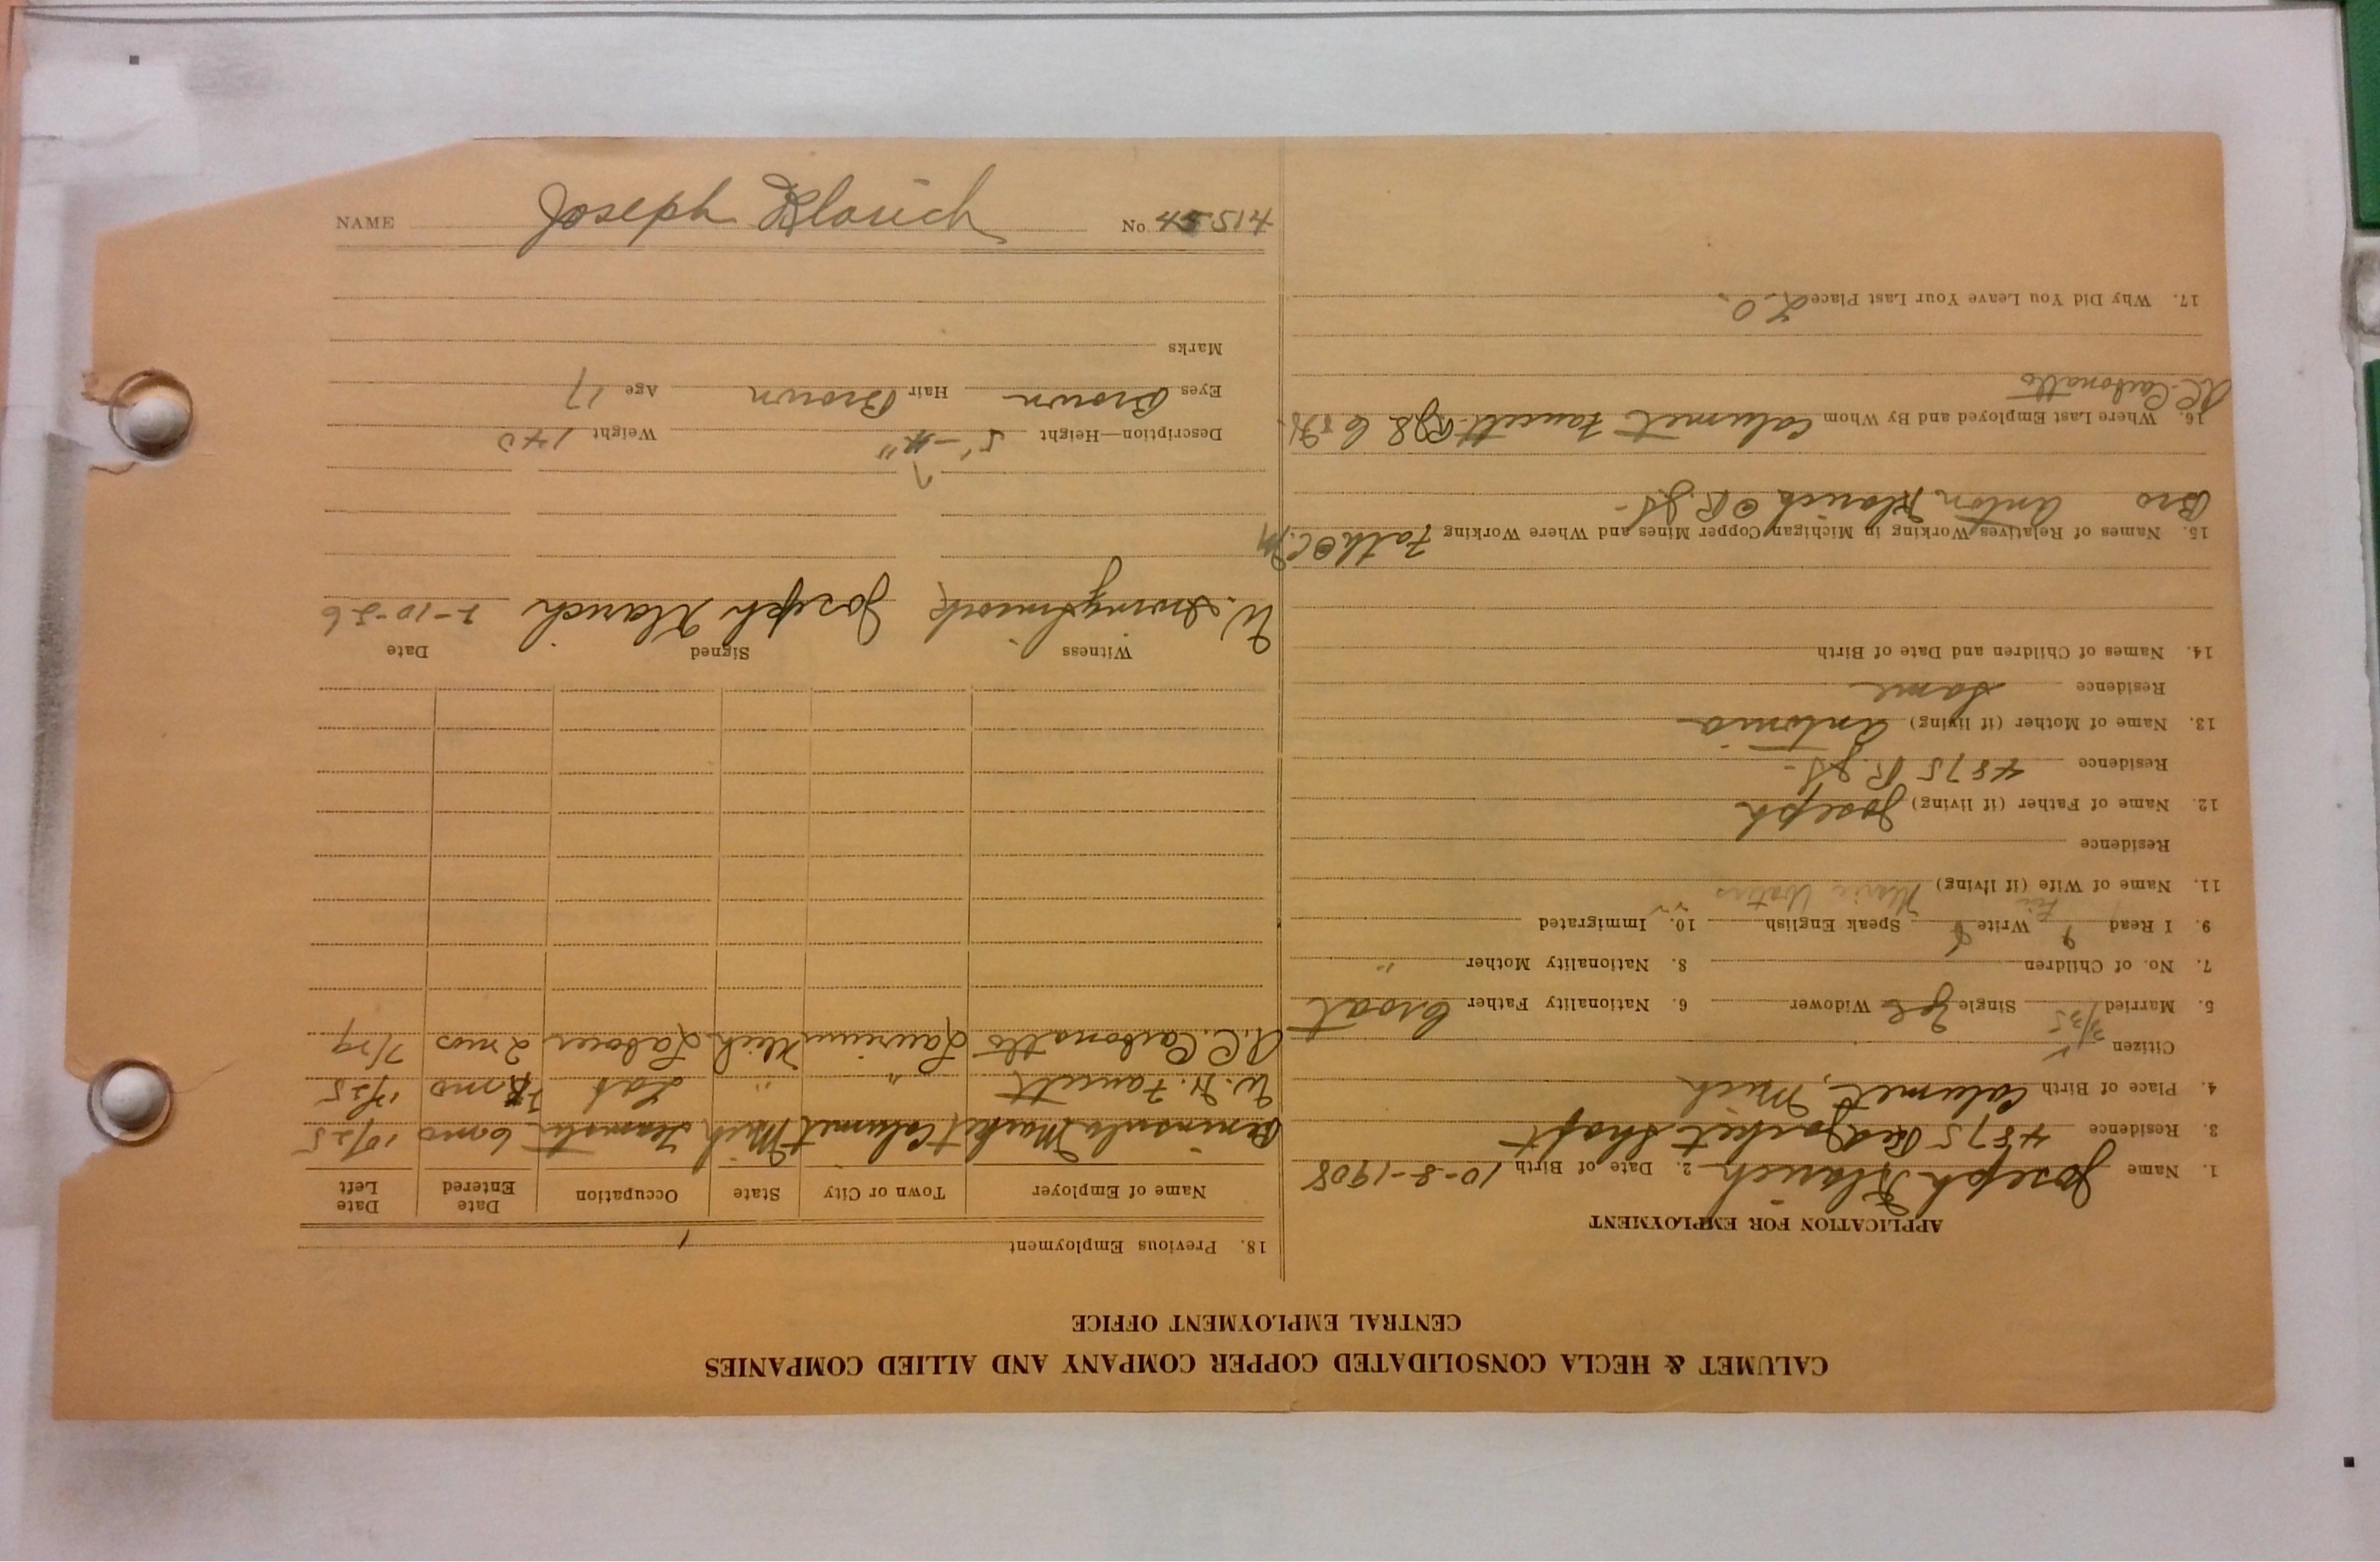 CALUMET & HECLA CONSOLIDATED COPPER COMPANY AND ALLIED COMPANIES
CENTRAL EMPLOYMENT OFFICE
APPLICATION FOR EMPLOYMENT
1. Name Joseph Klarich 2. Date of Birth 10-8-1908
3. Residence 4875 Red Jacket Shaft
4. Place of Birth Calumet, Mich
Citizen
5. Married 3/35 Single Sgle Widower 6. Nationality Father Croat
7. No. of Children 8. Nationality Mother "
9. I Read Write Speak English 10. Immigrated
11. Name of Wife (if living) Marie
Residence
12. Name of Father (if living) Joseph
Residence 4875 R.J.S.
13. Name of Mother (if living) Antonia
Residence Same
14. Names of Children and Date of Birth
15. Names of Relatives Working in Michigan Copper Mines and Where Working Fath C.M
Bro Anton Klarich R.J.S.
16. Where Last Employed and By Whom Calumet Faucett
R.C. Carbonatto
17. Why Did You Leave Your Last Place L.O.
18. Previous Employment
Name of Employer Town or City State Occupation Date Entered Date Left
Peninsula Market Calumet Mich Teamster 6 mo 10/25
W.H. Faucett " " Lab mo 11/25
R.C. Carbonatto Laurium Mich Laborer 2 mos 7/29
Witness Signed Date
W. Joseph Klarich 2-10-26
Description—Height 5'- 7" Weight 140
Eyes Brown Hair Brown Age 17
Marks
NAME Joseph Klarich No 45514